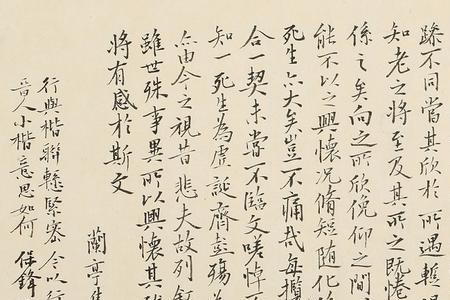 躁不同當其欣於所遇蹔
知老之將至及其所之既惓
係之矣向之所欣俛仰之間
能不以之興懷況脩短隨化
死生亦大矣豈不痛哉每攬
合一契未嘗不臨文嗟悼
知一死生為虛誕齊彭殤
亦由今之視昔悲夫故列
雖世殊事異所以興懷其
將有感於斯文
蘭亭集
行與楷聯緊密令以行
晉人小楷意思如何 保鋒